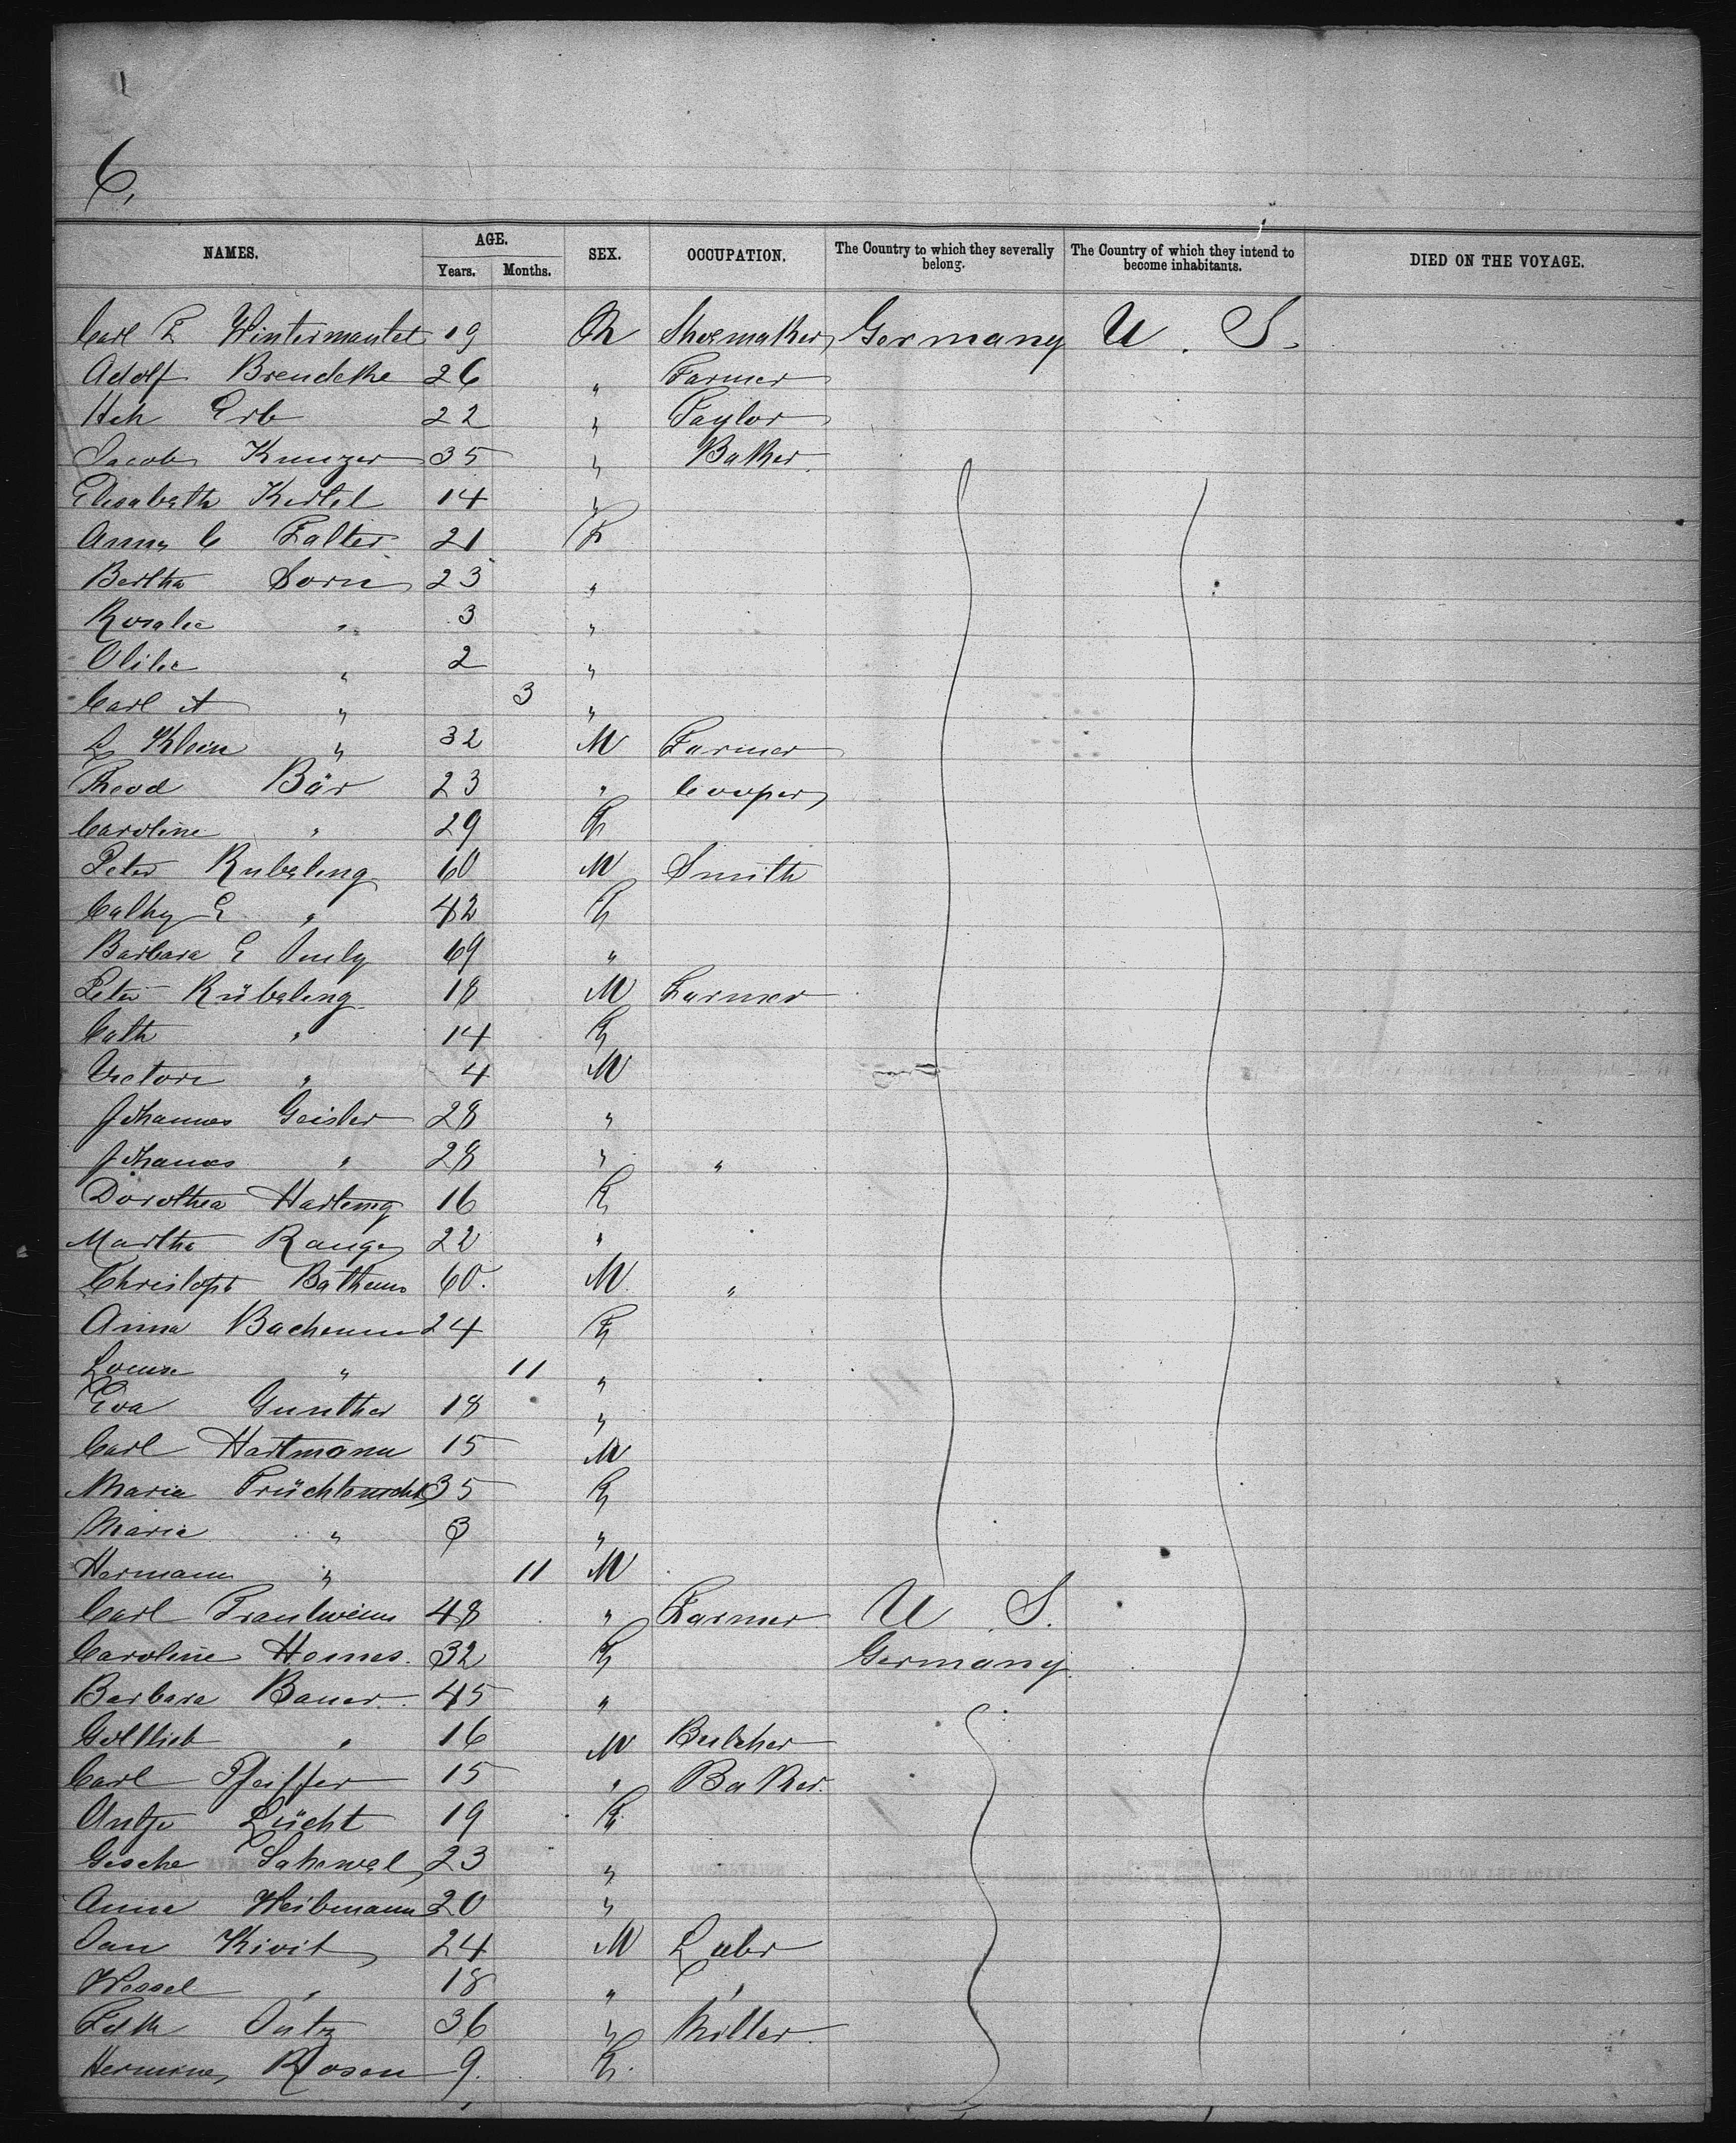 6,
NAMES. AGE. Years. Months. SEX. OCCUPATION. The Country to which they severally belong. The Country of which they intend to become inhabitants. DIED ON THE VOYAGE.
Carl F Wintermantel 19 M Shoemaker Germany U. S.
Adolf Brendeke 26 " Farmer
Hch Erb 22 " Taylor
Jacob Kunzer 35 " Baker
Elisabeth Kertel 14 "
Anna C Falter 21 F
Bertha Sorn 23 "
Rosalie " 3 "
Otilie " 2 "
Carl A " 3 "
L Klein " 32 M Farmer
Theod Bär 23 " Cooper
Caroline " 29 F
Peter Rubeling 60 M Smith
Cathy E " 42 F
Barbara E 69 "
Peter Rübeling 18 M Farmer
Cath " 14 F
Victori " 4 M
Johannes Geisler 28 "
Johanes " 28 " "
Dorothea Harteng 16 F
Martha Range 22 "
Christoph 60. M "
Anna 24 F
Louise " 11 "
Eva Gunther 18 "
Carl Hartmann 15 M
Maria 35 F
Maria " 3 "
Hermann " 11 M
Carl Trautwein 48 " Farmer U. S.
Caroline Homes. 32 F Germany
Barbara Bauer 45 "
Gottlieb " 16 M Butcher
Carl Pfeiffer 15 " Baker.
Antje Lücht 19 F
Gesche 23 "
Anna Weibmann 20 "
Jan Kivit 24 M Labr
Wessel " 18 " "
36 " Miller
Hermine Rosen 9. F.